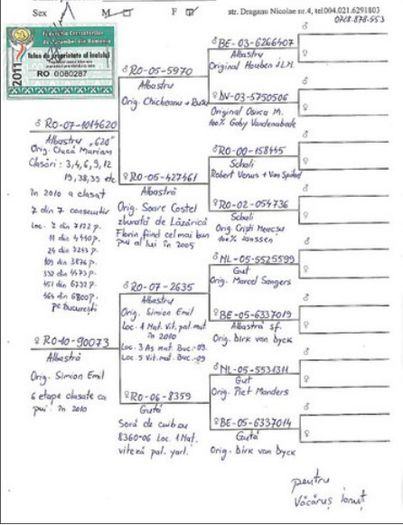 Sex M F str. Dragana Nicolae nr.4, tel004.021.6291803
Federația Crescătorilor
de Porumbei din România
Talon de proprietate al inelului
2011
RO 0080287
♂ RO-07-1014620
Albastru „620”
Orig. Ciucă Marian
Clasări: 3,4,6,9,12
19,38,39 etc
în 2010 a clasat
7 din 7 consecutiv
Loc. 2 din 7122 p.
11 din 4440 p.
24 din 3243 p.
109 din 3876 p.
332 din 4473 p.
451 din 6732 p.
464 din 6800 p.
pe București
♀ RO10-90073
Albastră
Orig. Simion Emil
6 etape clasate ca
pui în 2010
♂ RO-05-5970
Albastru
Orig. Chicheanu + Rusu
♀ RO-05-427461
Albastră
Orig. Soare Costel
zburată de Lăzărică
Florin fiind cel mai bun
pui al lui în 2005
♂ RO-07-2635
Albastru
Orig. Simion Emil
Loc. 1 Nat. Vit. pal. mat
în 2010
Loc. 3 As mat. Buc.-09.
Loc. 5 Vit. mat. Buc.-09
♀ RO-06-8359
Gută
Soră de cuib cu
8360-06 Loc. 1 Nat.
viteză pal. yarl.
♂ BE-03-6266407
Albastru
Original Houben J.L.M.
♀ DV-03-5750506
Original
100% Gaby Vandenabeele
♂ RO-00-158445
Schali
Robert Venus + Van
♀ RO-02-054736
Schali
Orig. Cristi
100% Janssen
♂ NL-05-5525599
Gut
Orig. Marcel Sangers
♀ BE-05-6337019
Albastră sf.
Orig. Dirk van Dyck
♂ NL-05-5531311
Gut
Orig. Piet Manders
♀ BE-05-6337014
Gută
Orig. Dirk van Dyck
pentru
Văcăruș Ionuț